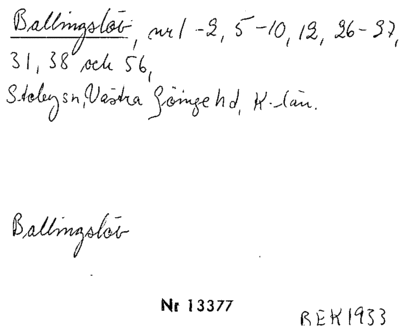 Ballingslöv, nr 1-2, 5-10, 12, 26-27,
31, 38 och 56,
Stoby sn, Västra Göinge hd, K-län.
Ballingslöv
Nr 13377
BEK 1933